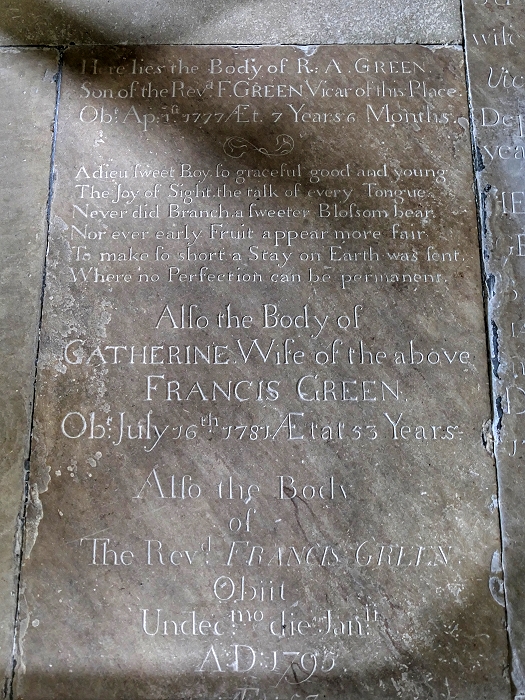 Here lies the Body of R: A. GREEN.
Son of the Revd. F GREEN Vicar of this Place.
Obt. Ap: 1st. 1777 Æt. 7 Years 6 Months.
Adieu ſweet Boy, ſo graceful good and young
The Joy of Sight, the talk of every Tongue
Never did Branch, a ſweeter Bloſsom bear,
Nor ever early Fruit appear more fair
To make ſo short a Stay on Earth was ſent,
Where no Perfection can be permanent.
Alſo the Body of
CATHERINE. Wife of the above
FRANCIS GREEN.
Obt. July 16th. 1781 Ætat 53 Years.
Alſo the Body
of
The Revd. FRANCIS GREEN
Obiit
Undec:mo die Janrii
A:D: 1795.
wife